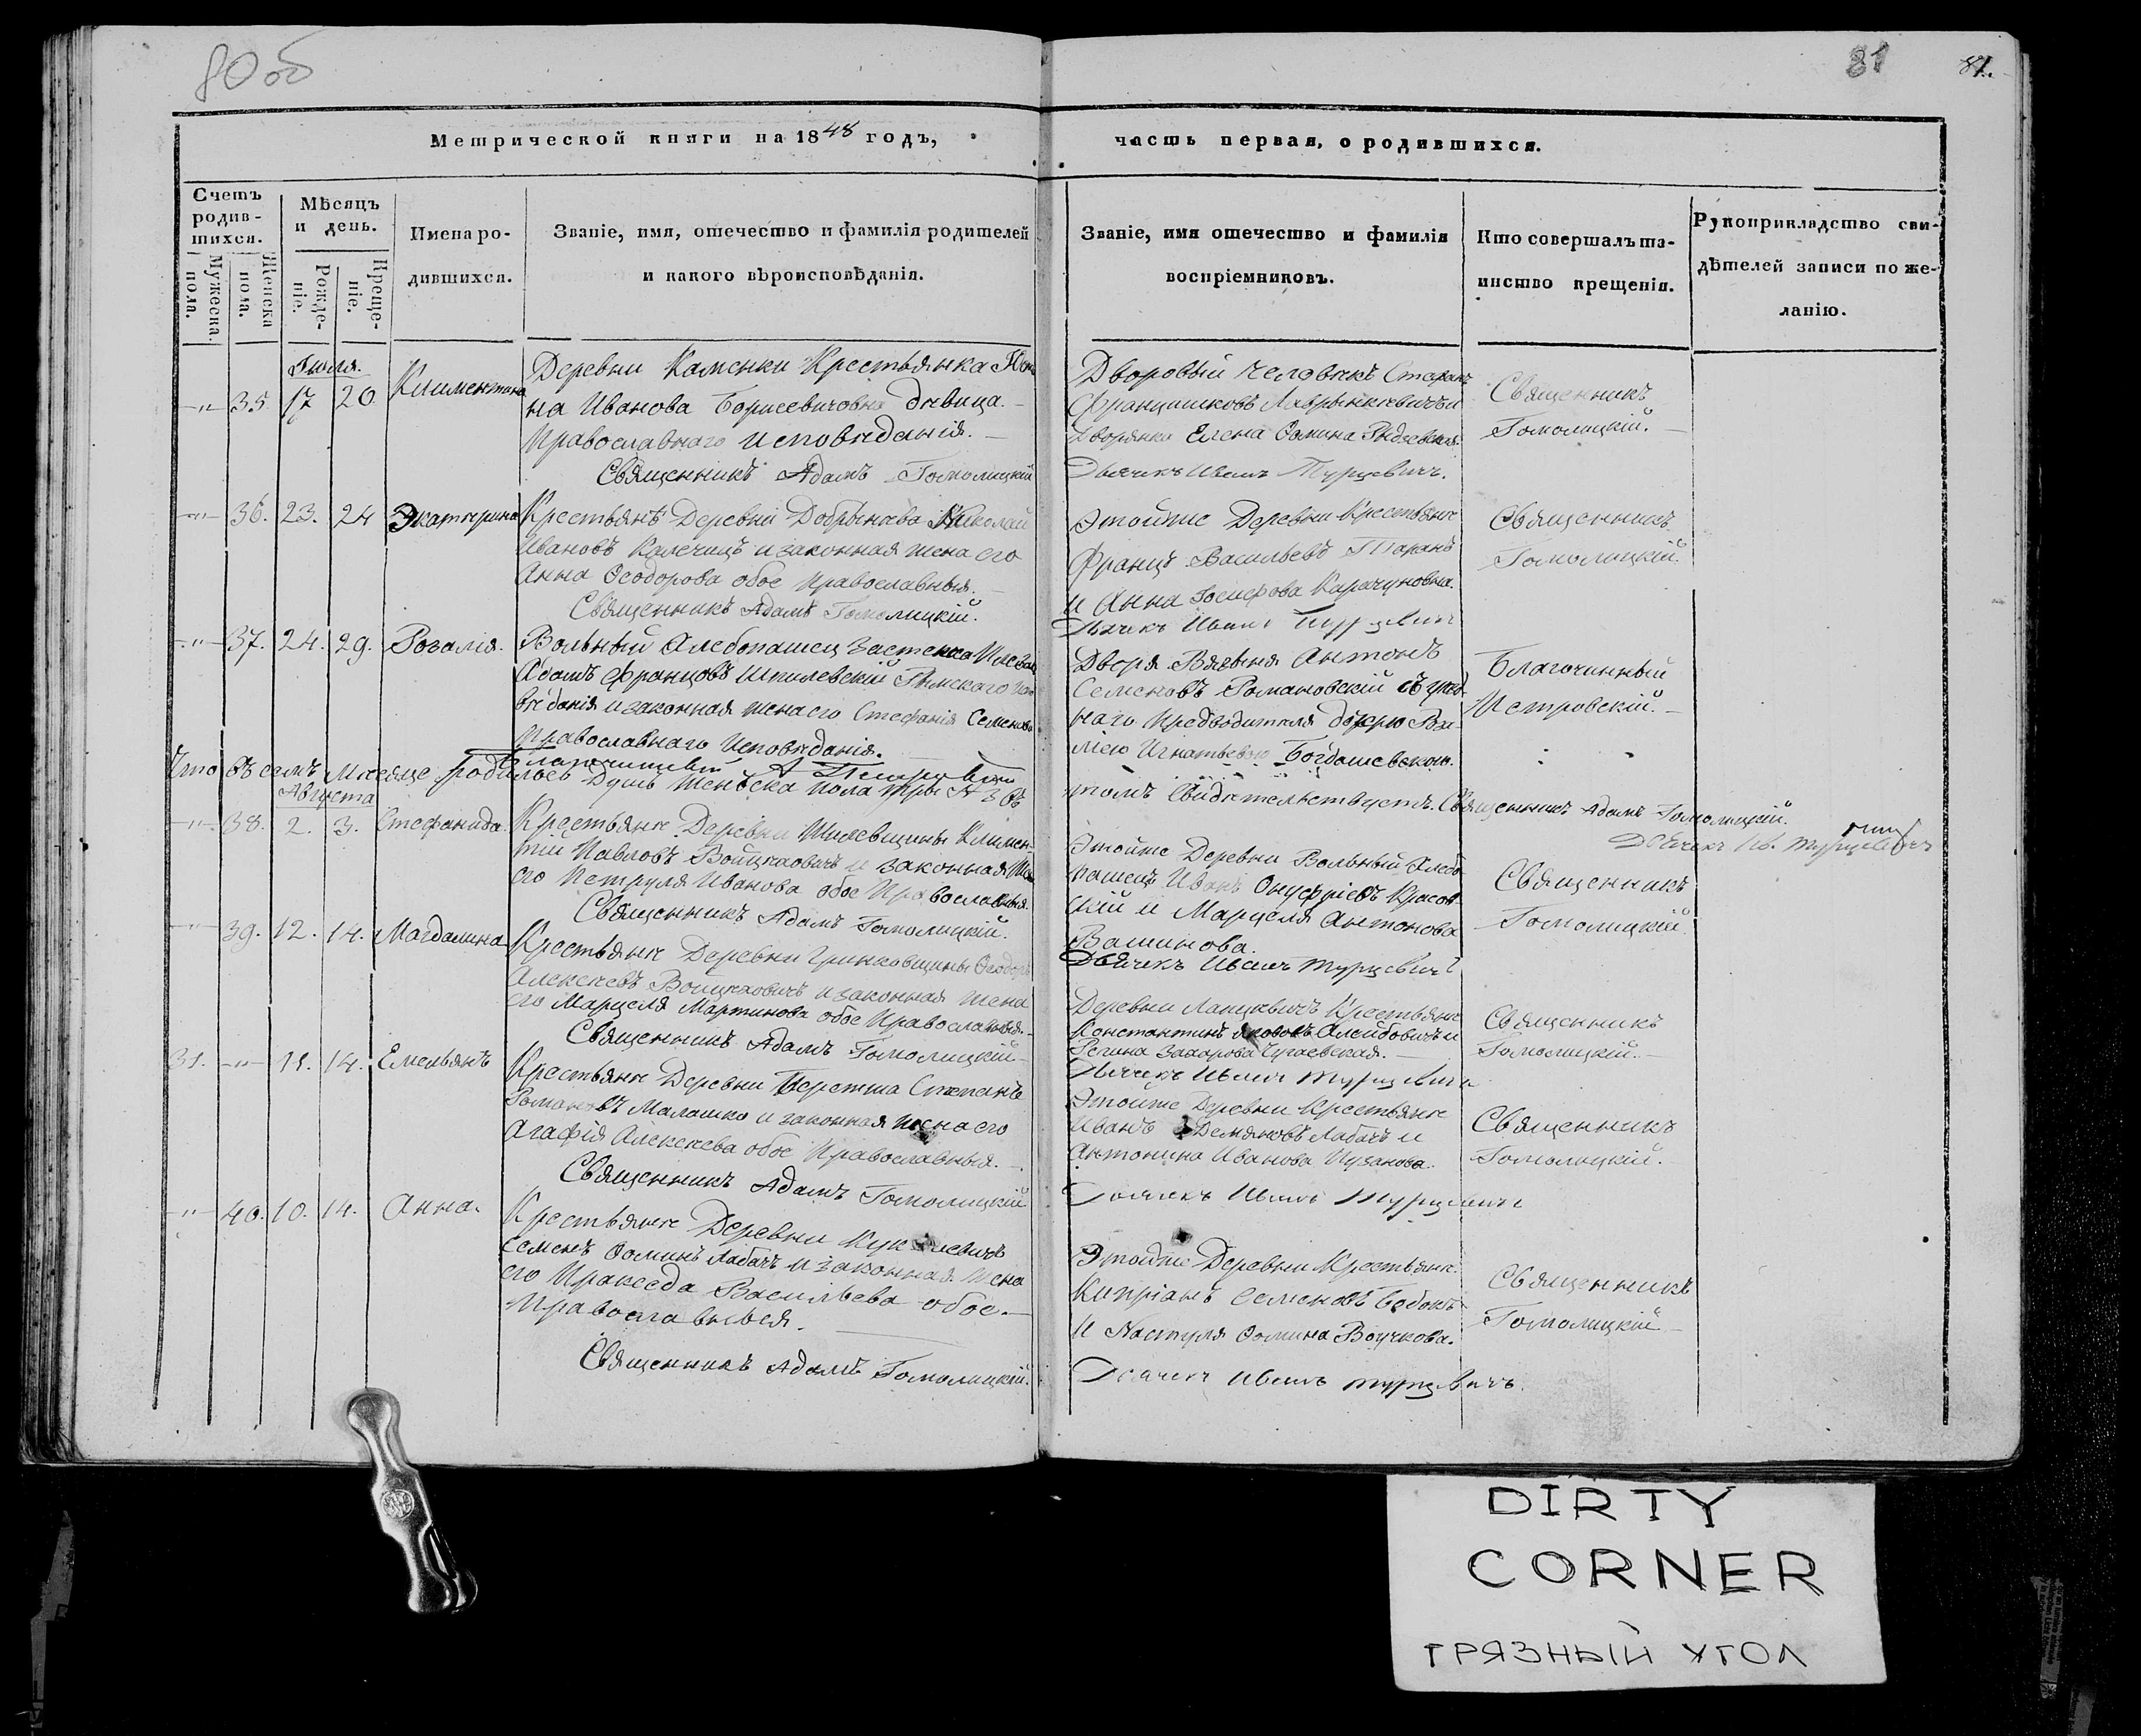 80 об
81
81.
Метрической книги на 1848 годъ,
часть первая, о родившихся.
Счетъ родившихся.
Мужеска пола.
Женска пола.
Мѣсяцъ и день.
Рожденіе.
Крещеніе.
Имена родившихся.
Званіе, имя, отечество и фамилія родителей
и какого вѣроисповѣданія.
Званіе, имя отечество и фамилія
воспріемниковъ.
Кто совершалъ таинство крещенія.
Рукоприкладство свидѣтелей записи по желанію.
Іюля.
-"- 35. 17 20 Климентина
Деревни Каменки Крестьянка
на Иванова Борисевичовна дѣвица.
Православнаго исповѣданія.
Священникъ Адамъ Гомолицкій
Дворовый человѣкъ Стефанъ
Францишковъ и
Дворянка Елена Фомина
Дьячекъ Иванъ Турцевичъ.
Священникъ
Гомолицкій.
-"- 36. 23. 24 Экатерина
Крестьянѣ Деревни Добрынева Николай
Ивановъ Калечицъ и законная жена его
Анна Феодорова обое православныя.
Священникъ Адамъ Гомолицкій.
Этойже Деревни Крестьяне
Францъ Васильевъ Таранъ
и Анна Іосифова Карачуновна.
Дьячекъ Иванъ Турцевичъ
Священникъ
Гомолицкій.
-"- 37. 24. 29. Розалія.
Вольный хлебопашец Застенка
Адамъ Францовъ Шпилевскій Римскаго испо
вѣданія и законная жена его Стефанія Семенова
Православнаго Исповѣданія.
Благочинный А Петровскій
Двора Вязыня Антонъ
Семеновъ Романовскій съ уезд
наго Предводителя дочерю Роза
ліею Игнатьевою Богдашевскою.
Благочинный
Петровскій.
Что въ семъ Месяце родилось Душъ Женска пола три № 3 въ
томъ Свидетельствуетъ. Священникъ Адамъ Гомолицкій.
Дьячекъ Ив. Турцевичъ
Августа
-"- 38. 2. 3. Стефанида.
Крестьяне Деревни Шилевщины Климен-
тій Павловъ Войцеховичъ и законная жена
его Петруля Иванова обое Православныя.
Священникъ Адамъ Гомолицкій.
Этойже Деревни Вольный хлебо
пашецъ Иванъ Онуфріевъ Красов
скій и Марцеля Антонова
Вашинова.
Дьячекъ Иванъ Турцевичъ
Священникъ
Гомолицкій.
-"- 39. 12. 14. Магдалина
Крестьяне Деревни Гринковщины Феодоръ
Алексеевъ Войцеховичъ и законная жена
его Марцеля Мартинова обое Православныя.
Священникъ Адамъ Гомолицкій
Деревни Лапцевичъ Крестьяне
Константинъ Яковлевъ и
Регина Захарова
Дьячекъ Иванъ Турцевичъ
Священникъ
Гомолицкій.
31. -"- 11. 14. Емельянъ
Крестьяне Деревни Степанъ
Романовъ Малашко и законная жена его
Агафія Алексеева обое Православныя.
Священникъ Адамъ Гомолицкій
Этойже Деревни Крестьяне
Иванъ Демяновъ Лабачъ и
Антонина Иванова Пузанова.
Дьячекъ Иванъ Турцевичъ
Священникъ
Гомолицкій.
-"- 40. 10. 14. Анна.
Крестьяне Деревни
Семенъ Фоминъ Лабачъ и законная жена
его Пракседа Васильева обое
Православныя.
Священникъ Адамъ Гомолицкій.
Этойже Деревни Крестьяне
Кипріанъ Семеновъ Бобокъ
и Настуля Фомина Воучкова.
Дьячекъ Иванъ Турцевичъ.
Священникъ
Гомолицкій
DIRTY
CORNER
ГРЯЗНЫЙ УГОЛ